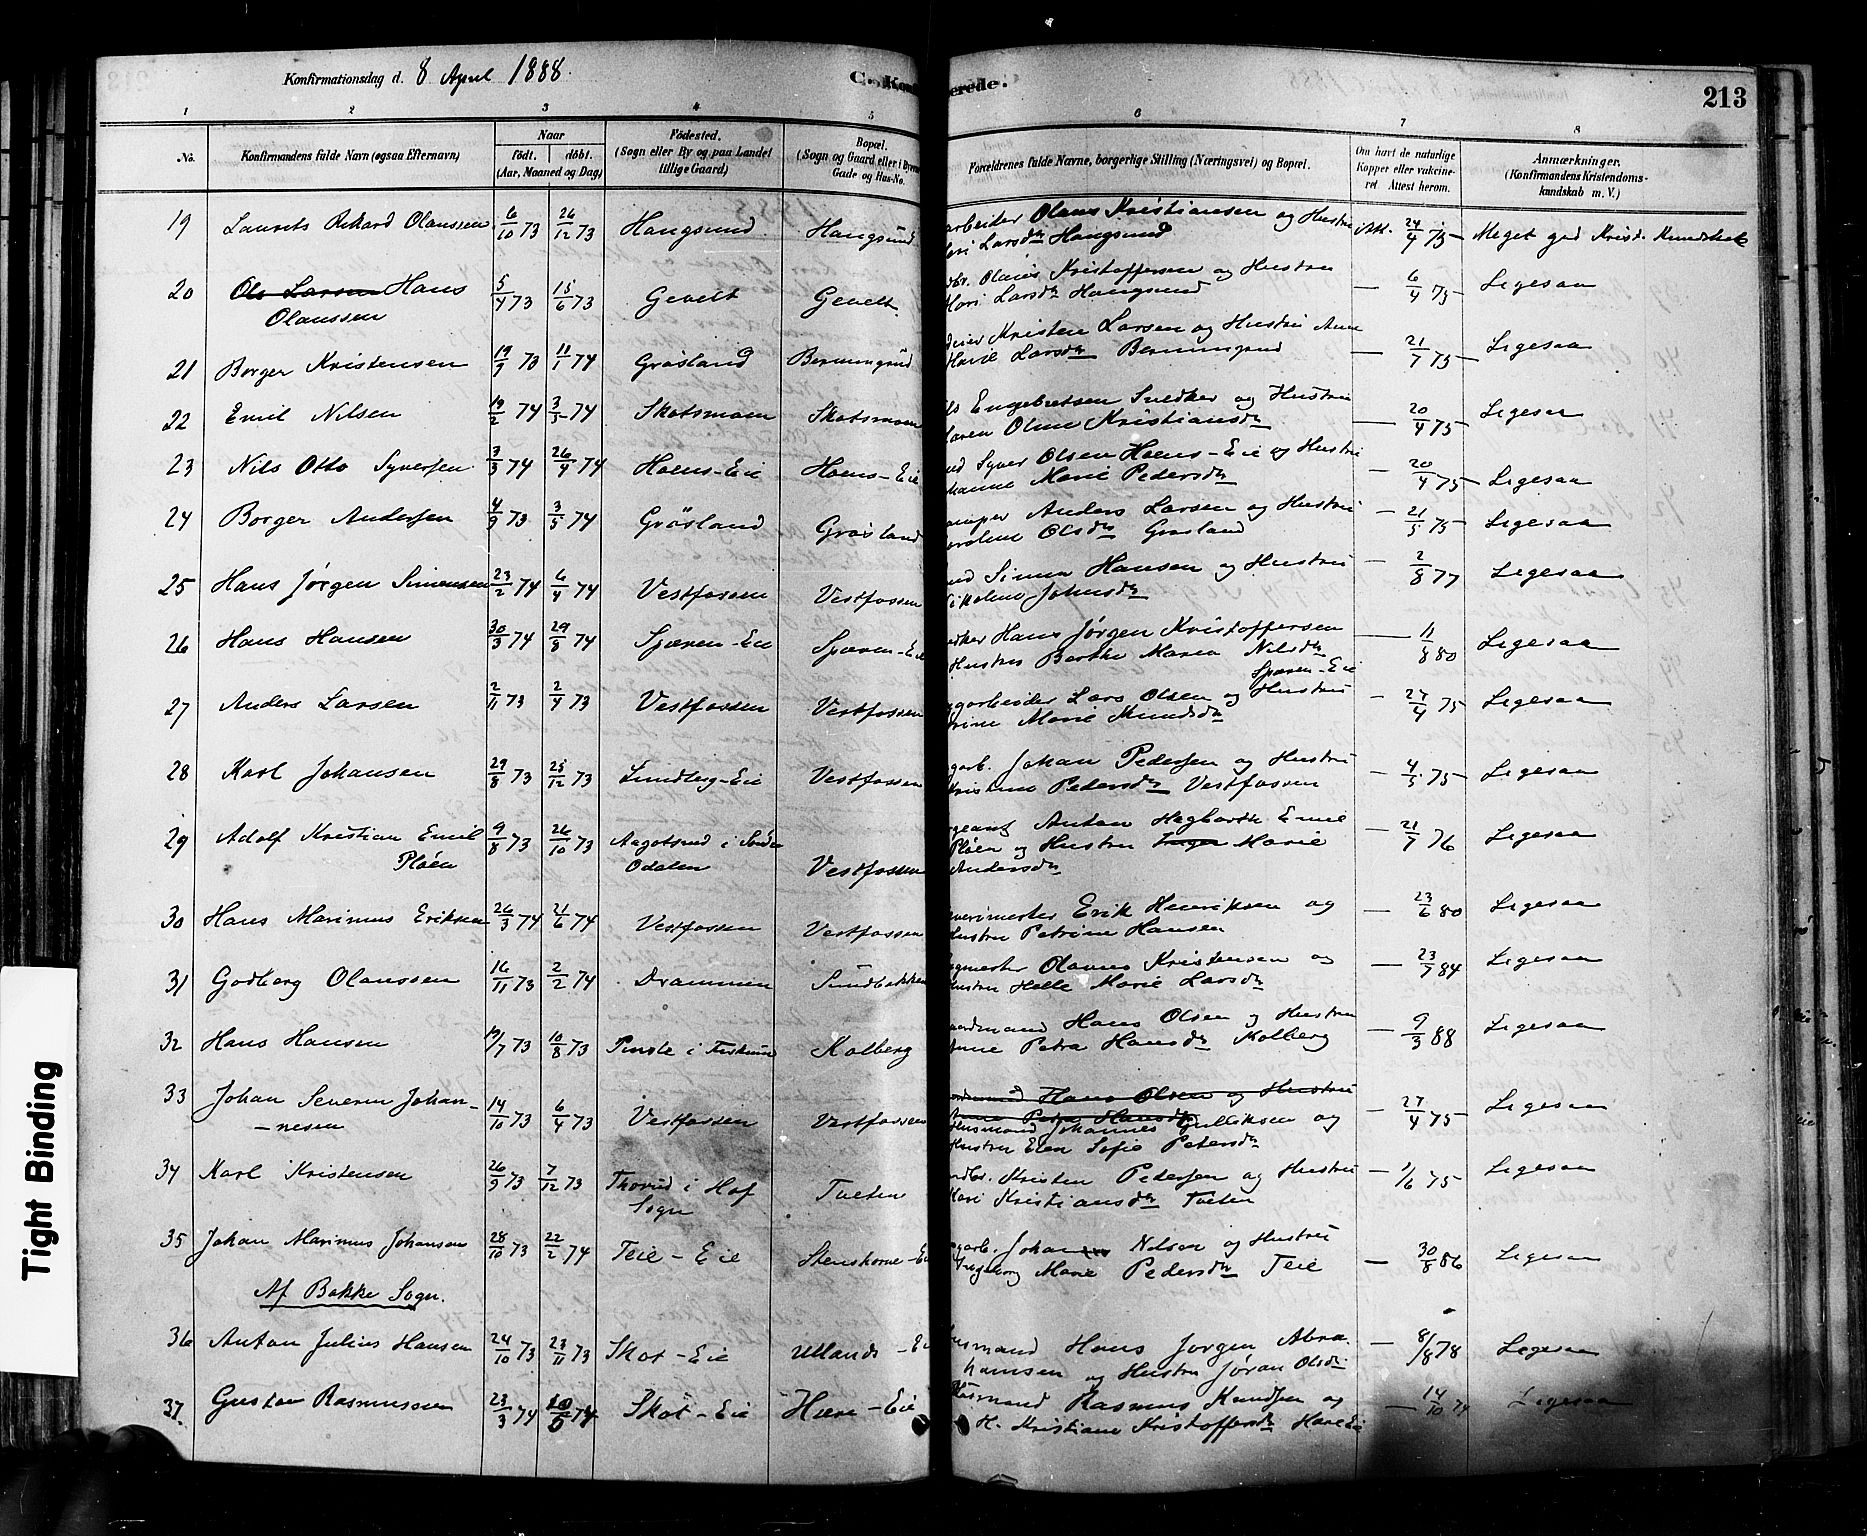 Konfirmationsdag d. 8 April 1888.
C. Konf
erede.
213
1 2 3 4 5 6 7 8
No.
Konfirmandens fulde Navn (ogsaa Efternavn)
Naar
födt. döbt.
(Aar, Maaned og Dag)
Födested.
(Sogn eller By og paa Landet
tillige Gaard)
Bopæl.
(Sogn og Gaard eller i Byerne
Gade og Hus-No.
Forældrenes fulde Navne, borgerlige Stilling (Næringsvei) og Bopæl.
Om havt de naturlige
Kopper eller vakcine-
ret Attest herom.
Anmærkninger.
(Konfirmandens Kristendoms-
kundskab m. V.)
19 Laurits Rikard Olanssen 6/10 73 26/12 73 Haugsund Haugsund
arbeider Olaus Kristiansen og Hustru
Mari Larsdr Haugsund Att. 24/4 75 Meget god Krist. Kundskab
20 Ole Larsen Hans
Olanssen 5/4 73 15/6 73 Gevelt Gevelt
dbr. Olaus Kristoffersen og Hustru
Mari Larsdr Haugsund — 6/4 75 Ligesaa
21 Borger Kristensen 19/9 73 11/1 74 Grøsland Bermingrud
deier Kristen Larsen og Hustru Anne
Marie Larsdr Bermingrud — 21/7 75 Ligesaa
22 Emil Nilsen 19/2 74 3/5 74 Skotsmoen Skotsmoen
ls Engebretsen Snedker og Hustru
Maren Oline Kristiansdr — 20/4 75 Ligesaa
23 Nils Otto Syversen 3/3 74 26/4 74 Hoens-Eie Hoens-Eie
nd Syver Olsen Hoens-Eie og Hustru
hanne Marie Pedersdr — 20/4 75 Ligesaa
24 Borger Andersen 4/9 73 3/5 74 Grøsland Grøsland
amper Anders Larsen og Hustru
aroline Olsdr Grøsland — 21/5 75 Ligesaa
25 Hans Jørgen Simensen 23/2 74 6/4 74 Vestfossen Vestfossen
nd Simen Hansen og Hustru
Nikoline Johnsdr — 2/8 77 Ligesaa
26 Hans Hansen 30/3 74 29/8 74 Spæren-Eie Spæren-Eie
edker Hans Jørgen Kristoffersen
Hustru Berthe Maren Nilsdr
Spæren-Eie — 11/8 80 Ligesaa
27 Anders Larsen 2/11 73 2/4 73 Vestfossen Vestfossen
ggarbeider Lars Olsen og Hustru
trine Marie Knudsdr — 27/4 75 Ligesaa
28 Karl Johansen 29/8 73 25/12 73 Lundberg-Eie Vestfossen
garb. Johan Pedersen og Hustru
Kristine Petersdr Vestfossen — 4/5 75 Ligesaa
29 Adolf Kristian Emil
Pløen 9/8 73 26/10 73 Aagotsrud i Søndre
Odalen Vestfossen
rgeant Anton Hagbarth Emil
Pløen og Hustru Inger Marie
Andersdr — 21/7 76 Ligesaa
30 Hans Marinus Eriksen 26/3 74 21/6 74 Vestfossen Vestfossen
verimester Erik Henriksen og
Hustru Petrine Hansen — 23/6 80 Ligesaa
31 Godborg Olanssen 16/11 73 2/2 74 Drammen Sundbakken
ugmester Olaves Kristensen og
Hustru Helle Marie Larsdr — 23/7 84 Ligesaa
32 Hans Hansen 17/7 73 10/8 73 Pinsle i Fiskum Kolberg
aardmand Hans Olsen og Hustru
Anne Petra Hansdr Kolberg — 9/3 88 Ligesaa
33 Johan Severin Johan-
nesen 14/10 73 6/4 73 Vestfossen Vestfossen
ardmand Hans Olsen og Hustru
Anne Petra Hansdr
Husmand Johannes Gulliksen og
Hustru Elen Sofie Petersdr — 27/4 75 Ligesaa
34 Karl Kristensen 26/9 73 7/12 73 Thorrud i Hof
Sogn Tveten
ndbr. Kristen Petersen og Hustru
Kari Kristiansdr Tveten — 1/6 75 Ligesaa
35 Johan Marinus Johansen 28/10 73 22/2 74 Teie-Eie Stenskorne-Ei
ugarb. Johan Nilsen og Hustru
Ingeborg Marie Pedersdr Teie — 30/8 86 Ligesaa
Af Bakke Sogn.
36 Anton Julius Hansen 24/10 73 23/11 73 Skot-Eie Ullands-Ei
usmand Hans Jørgen Abra-
hamsen og Hustru Jøran Olsdr — 8/8 78 Ligesaa
37. Gustav Rasmussen 23/3 74 10/5 74 Skot-Eie Hære-Eie
Husmand Rasmus Knudsen og
H. Kristiane Kristoffersdr Hære Eie — 14/10 74 Ligesaa
Tight Binding